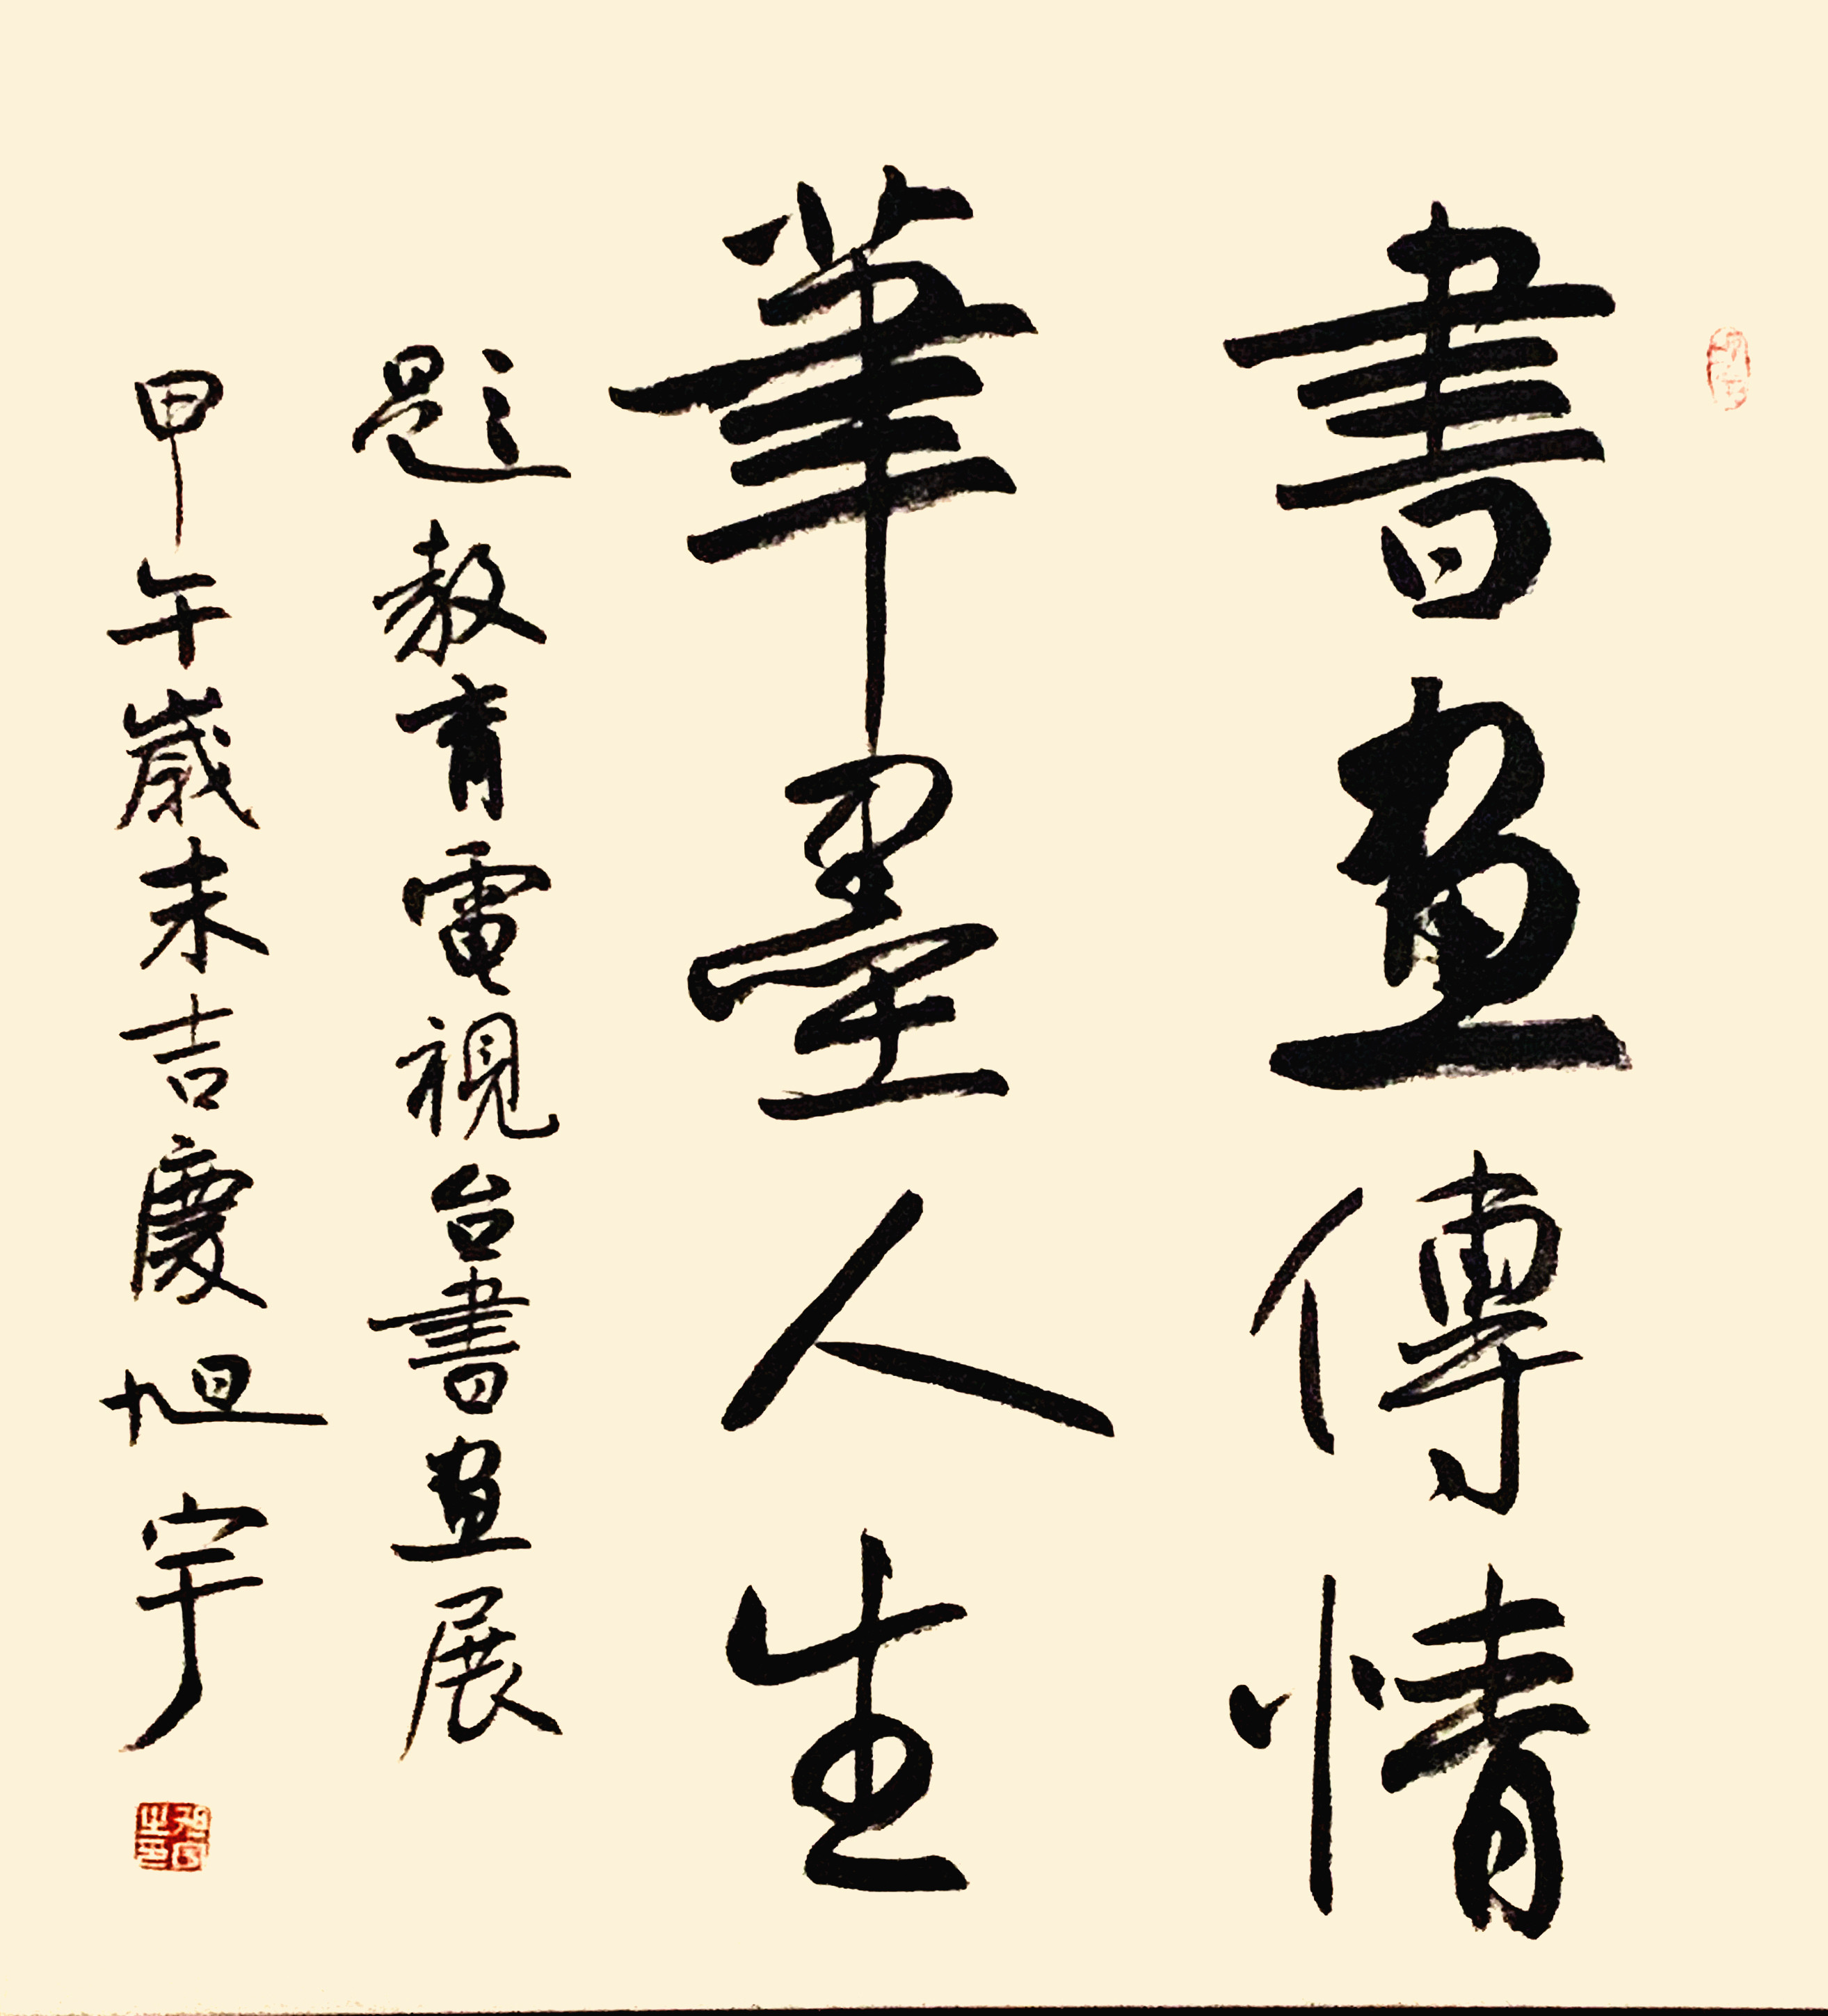 書畫傳情
筆墨人生
題教育電視台書畫展
甲午歲末吉慶旭宇